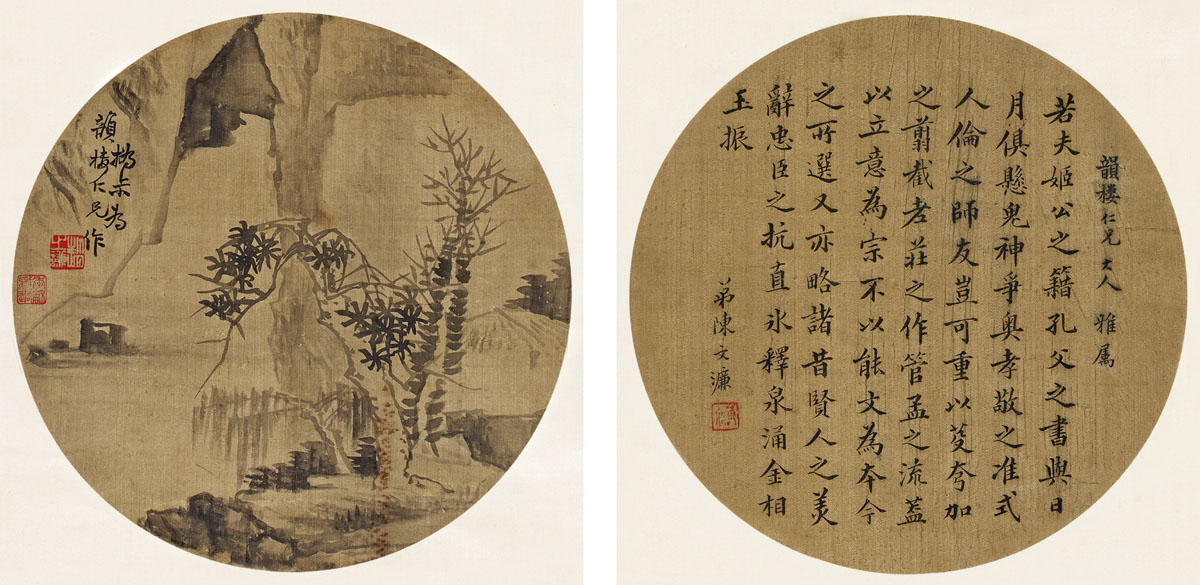 撝尗為
韻樓仁兄作
韻樓仁兄大人雅屬
若夫姬公之籍孔父之書與日
月俱懸鬼神爭奥孝敬之准式
人倫之師友豈可重以芟夸加
之翦截老莊之作管孟之流蓋
以立意為宗不以能文為本今
之所選又亦略諸昔賢人之美
辭忠臣之抗直冰釋泉涌金相
玉振
弟陳文濂